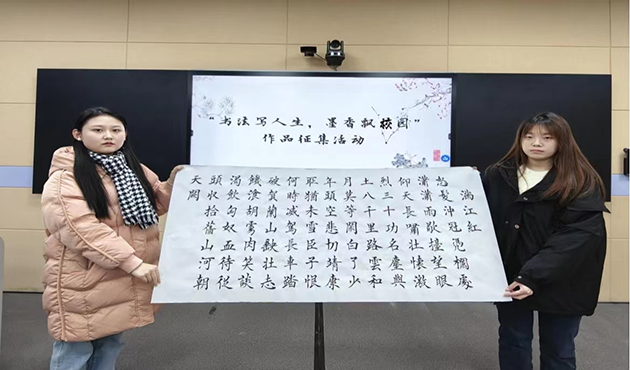 “书法写人生，墨香飘校园”
作品征集活动
滿江紅
怒髮沖冠凴欄處
瀟瀟雨歇擡望眼
仰天長嘯壯懷激
烈三十功名塵與
土八千里路雲和
月莫等閒白了少
年頭空悲切靖康
耻猶未雪臣子恨
何時滅駕長車踏
破賀蘭山缺壯志
饑餐胡虜肉笑談
渴飲匈奴血待從
頭收拾舊山河朝
天闕